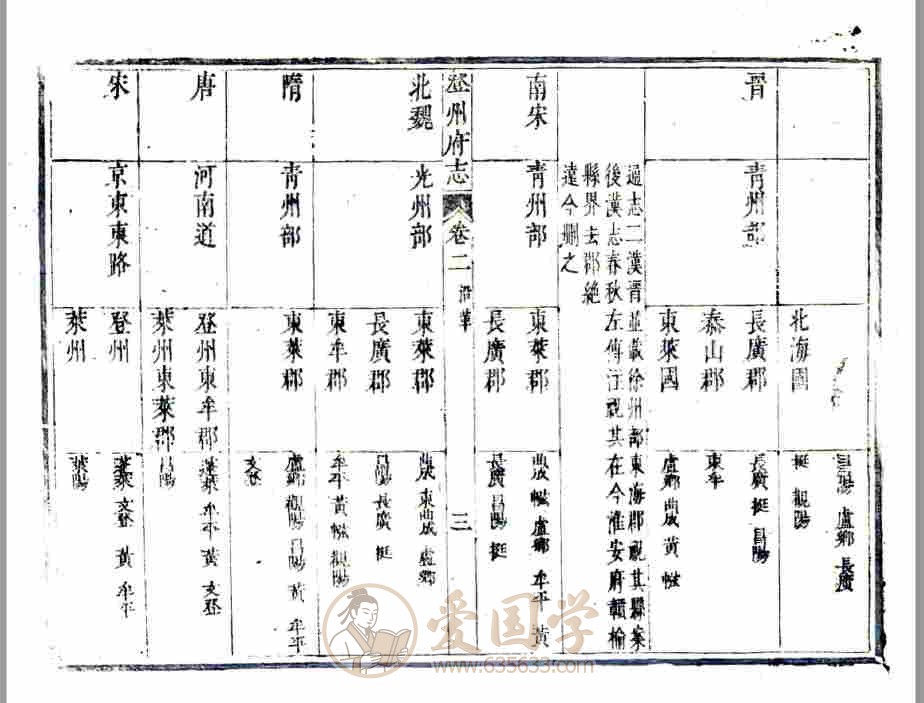 昌陽 盧鄉 長廣
北海國
挺 觀陽
晋
青州部
長廣郡
長廣 挺 昌陽
泰山郡
東牟
東萊國
盧鄉 曲成 黃 㡉
通志二漢晋並載徐州部東海郡祝其縣案
後漢志春秋左傳注祝其在今淮安府贛榆
縣界去郡絕
遠今刪之
南宋
青州部
東萊郡
曲成 㡉 盧鄉 牟平 黃
長廣郡
長廣 昌陽 挺
登州府志
卷二
沿革
三
北魏
光州部
東萊郡
曲成 東曲成 盧鄉
長廣郡
昌陽 長廣 挺
東牟郡
牟平 黃 㡉 觀陽
隋
青州部
東萊郡
盧鄉 觀陽 昌陽 黃 牟平
文登
唐
河南道
登州東牟郡
蓬萊 牟平 黃 文登
萊州東萊郡
昌陽
宋
京東東路
登州
蓬萊 文登 黃 牟平
萊州
萊陽
爱国学
www.635633.com